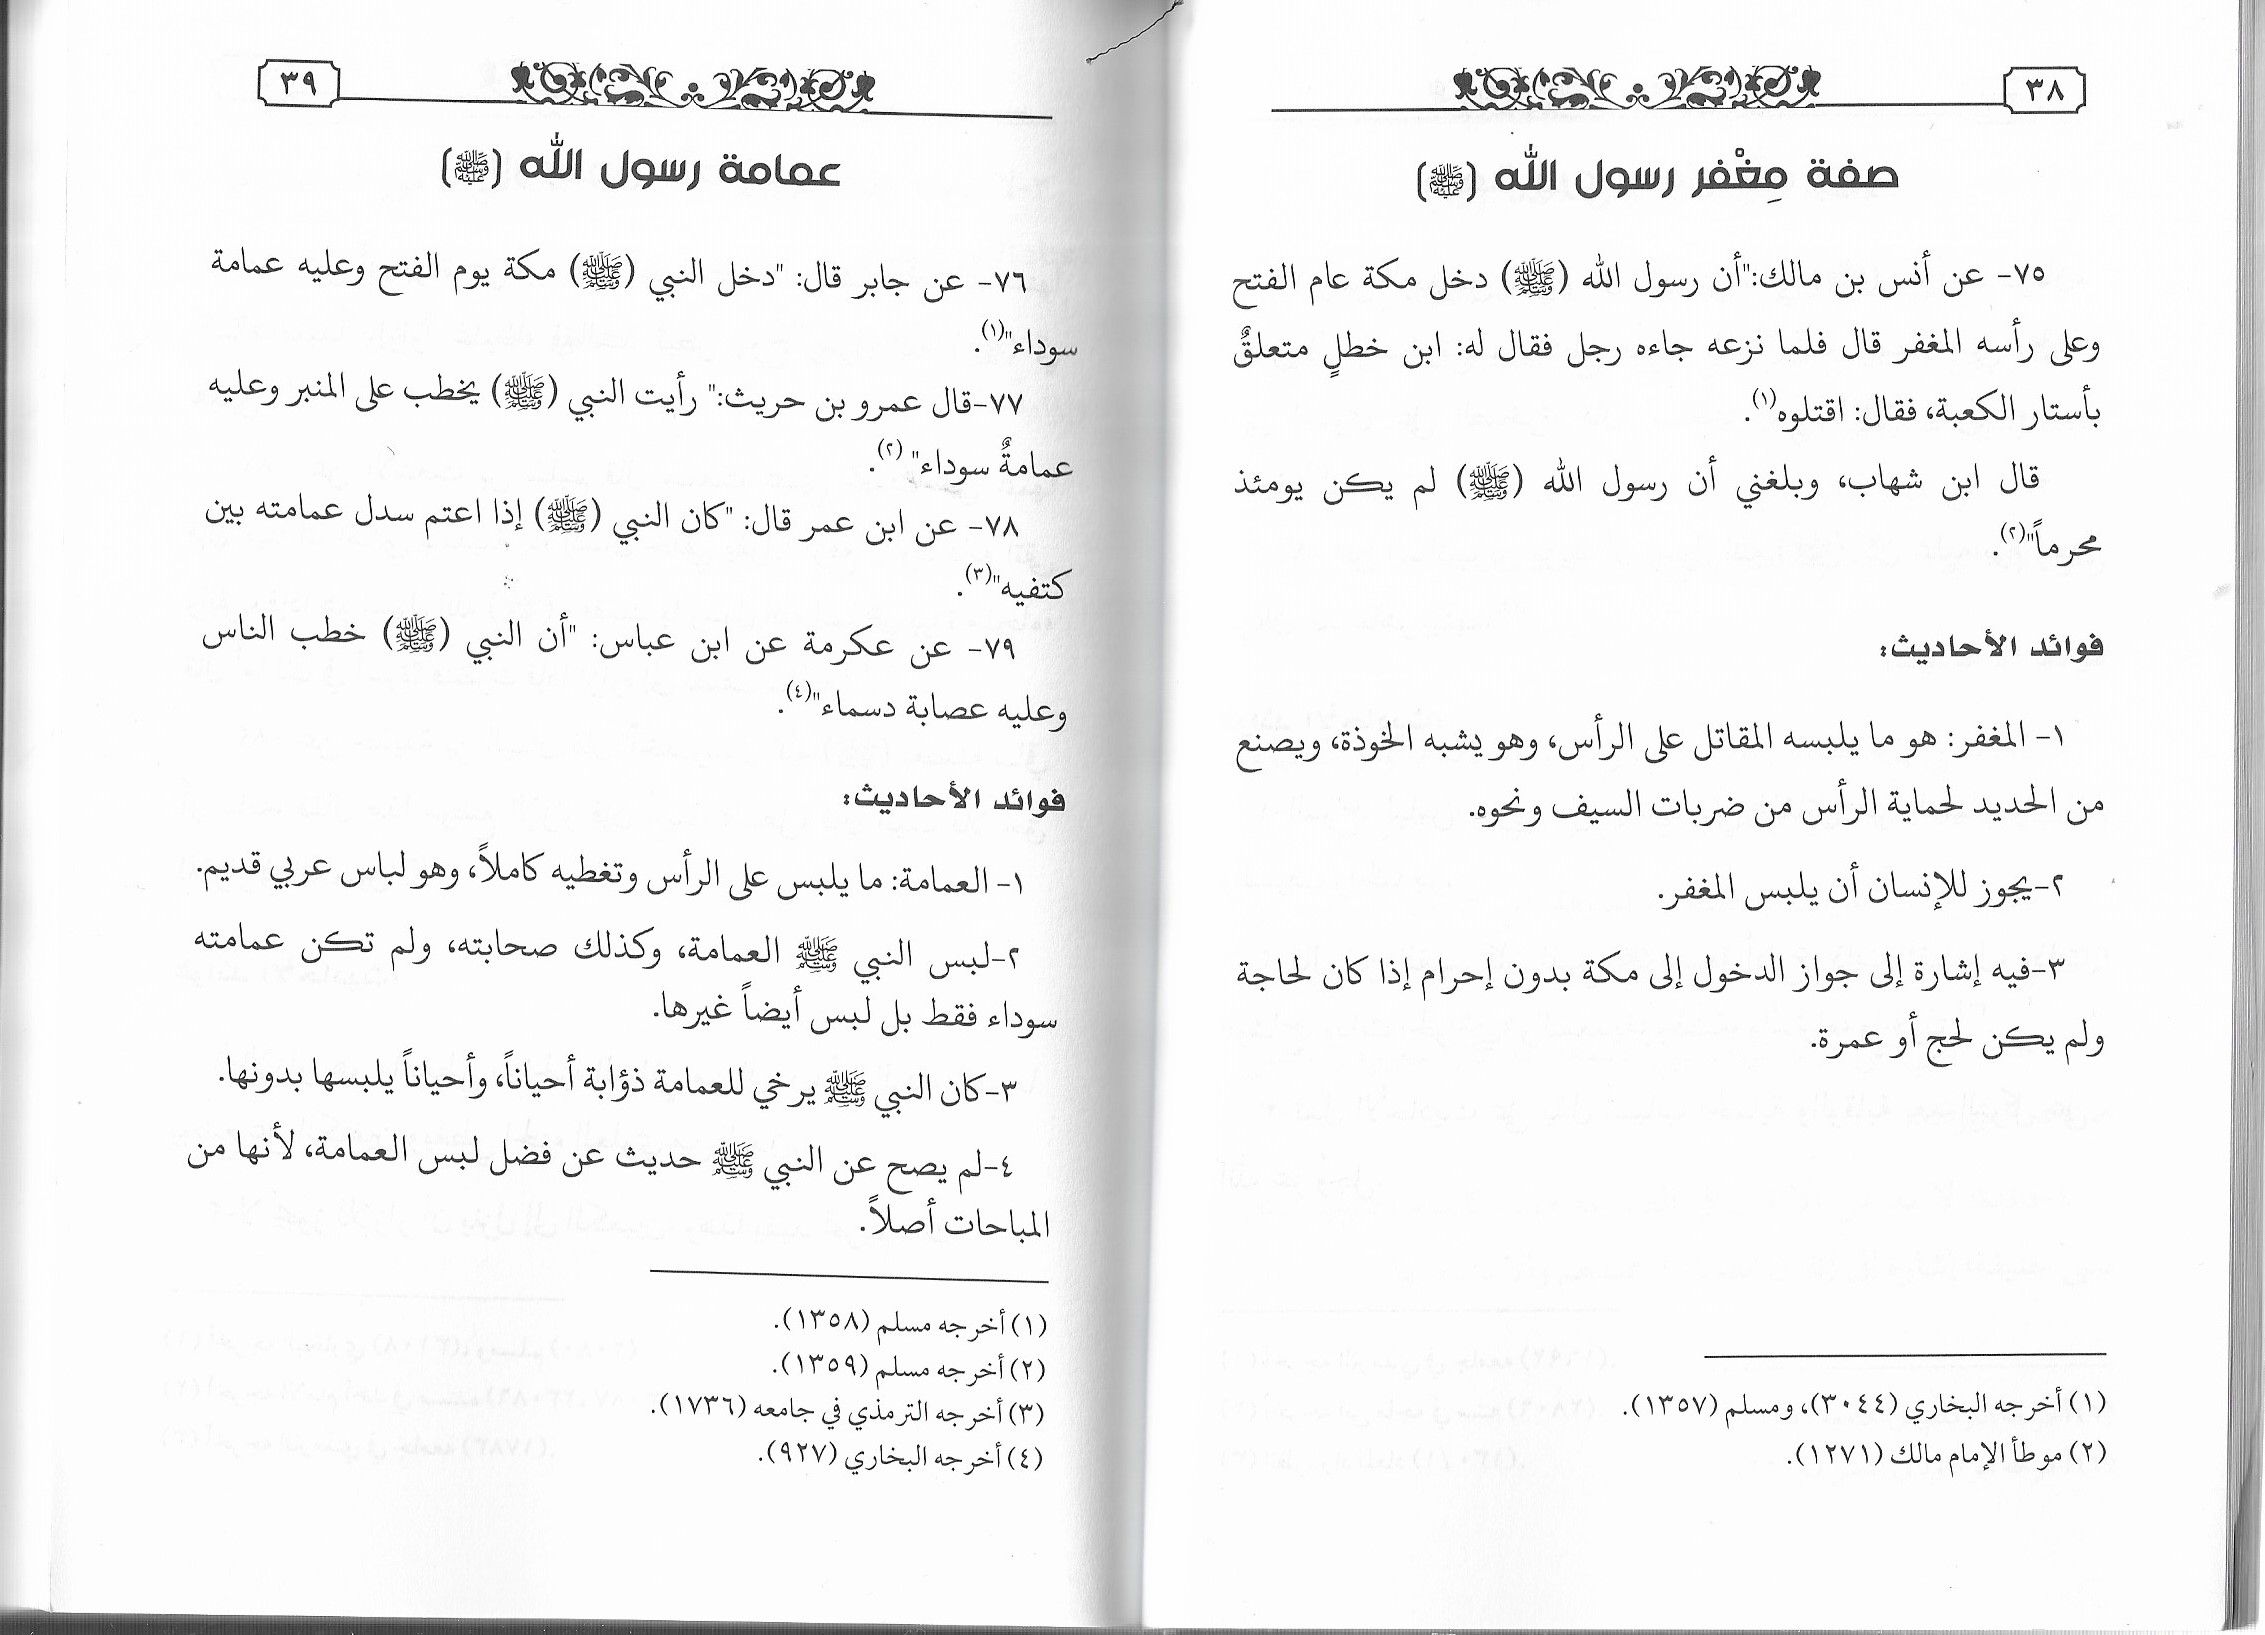 ٣٨
صفة مِغْفر رسول الله (ﷺ)
٧٥- عن أنس بن مالك:"أن رسول الله (ﷺ) دخل مكة عام الفتح
وعلى رأسه المغفر قال فلما نزعه جاءه رجل فقال له: ابن خطلٍ متعلقٌ
بأستار الكعبة، فقال: اقتلوه(١).
قال ابن شهاب، وبلغني أن رسول الله (ﷺ) لم يكن يومئذ
محرماً"(٢).
فوائد الأحاديث:
١- المغفر: هو ما يلبسه المقاتل على الرأس، وهو يشبه الخوذة، ويصنع
من الحديد لحماية الرأس من ضربات السيف ونحوه.
٢-يجوز للإنسان أن يلبس المغفر.
٣-فيه إشارة إلى جواز الدخول إلى مكة بدون إحرام إذا كان لحاجة
ولم يكن لحج أو عمرة.
(١) أخرجه البخاري (٣٠٤٤)، ومسلم (١٣٥٧).
(٢) موطأ الإمام مالك (١٢٧١).
٣٩
عمامة رسول الله (ﷺ)
٧٦- عن جابر قال: "دخل النبي (ﷺ) مكة يوم الفتح وعليه عمامة
سوداء"(١).
٧٧-قال عمرو بن حريث:" رأيت النبي (ﷺ) يخطب على المنبر وعليه
عمامةٌ سوداء" (٢).
٧٨- عن ابن عمر قال: "كان النبي (ﷺ) إذا اعتم سدل عمامته بين
كتفيه"(٣).
٧٩- عن عكرمة عن ابن عباس: "أن النبي (ﷺ) خطب الناس
وعليه عصابة دسماء"(٤).
فوائد الأحاديث:
١- العمامة: ما يلبس على الرأس وتغطيه كاملاً، وهو لباس عربي قديم.
٢-لبس النبي ﷺ العمامة، وكذلك صحابته، ولم تكن عمامته
سوداء فقط بل لبس أيضاً غيرها.
٣-كان النبي ﷺ يرخي للعمامة ذؤابة أحياناً، وأحياناً يلبسها بدونها.
٤-لم يصح عن النبي ﷺ حديث عن فضل لبس العمامة، لأنها من
المباحات أصلاً.
(١) أخرجه مسلم (١٣٥٨).
(٢) أخرجه مسلم (١٣٥٩).
(٣) أخرجه الترمذي في جامعه (١٧٣٦).
(٤) أخرجه البخاري (٩٢٧).